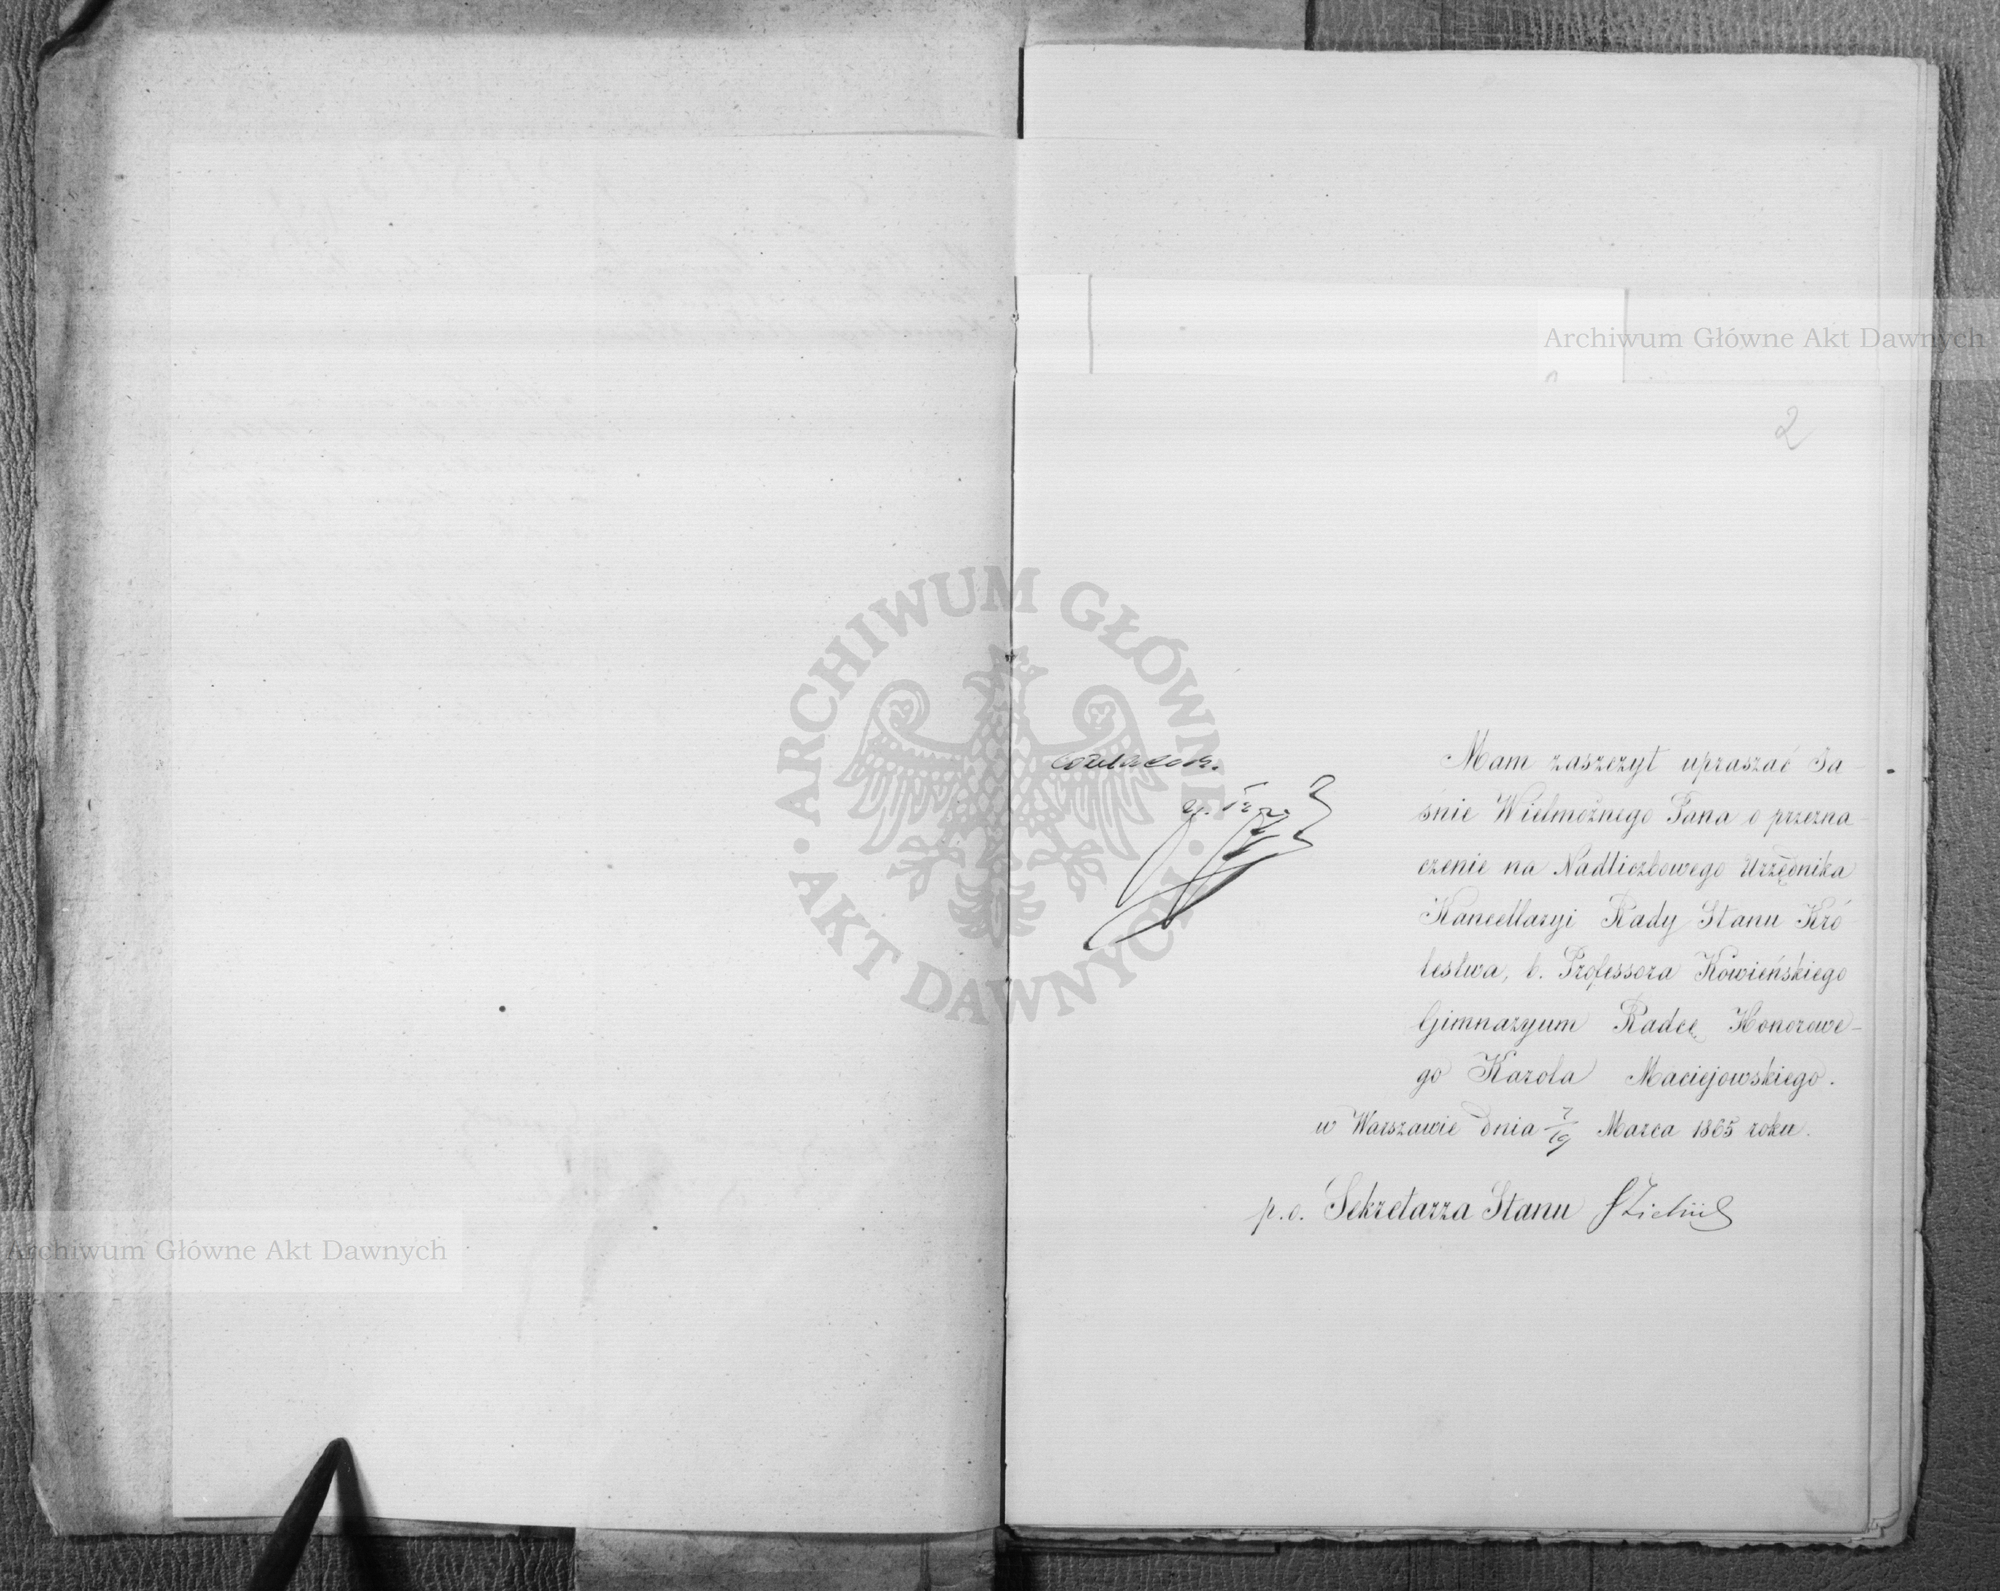 Archiwum Główne Akt Dawnych
2
Mam zaszczyt upraszać Ja-
śnie Wielmożnego Pana o przezna-
czenie na Nadliczbowego Urzędnika
Kancellaryi Rady Stanu Kró
lestwa, b. Professora Kowieńskiego
Gimnazyum Radcę Honorowe-
go Karola Maciejowskiego.
w Warszawie dnia 7/19 Marca 1865 roku.
p.o. Sekretarza Stanu
ARCHIWUM GŁÓWNE
AKT DAWNYCH
Archiwum Główne Akt Dawnych